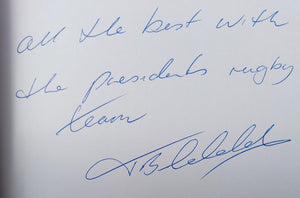 all the best with
the presidents rugby
team